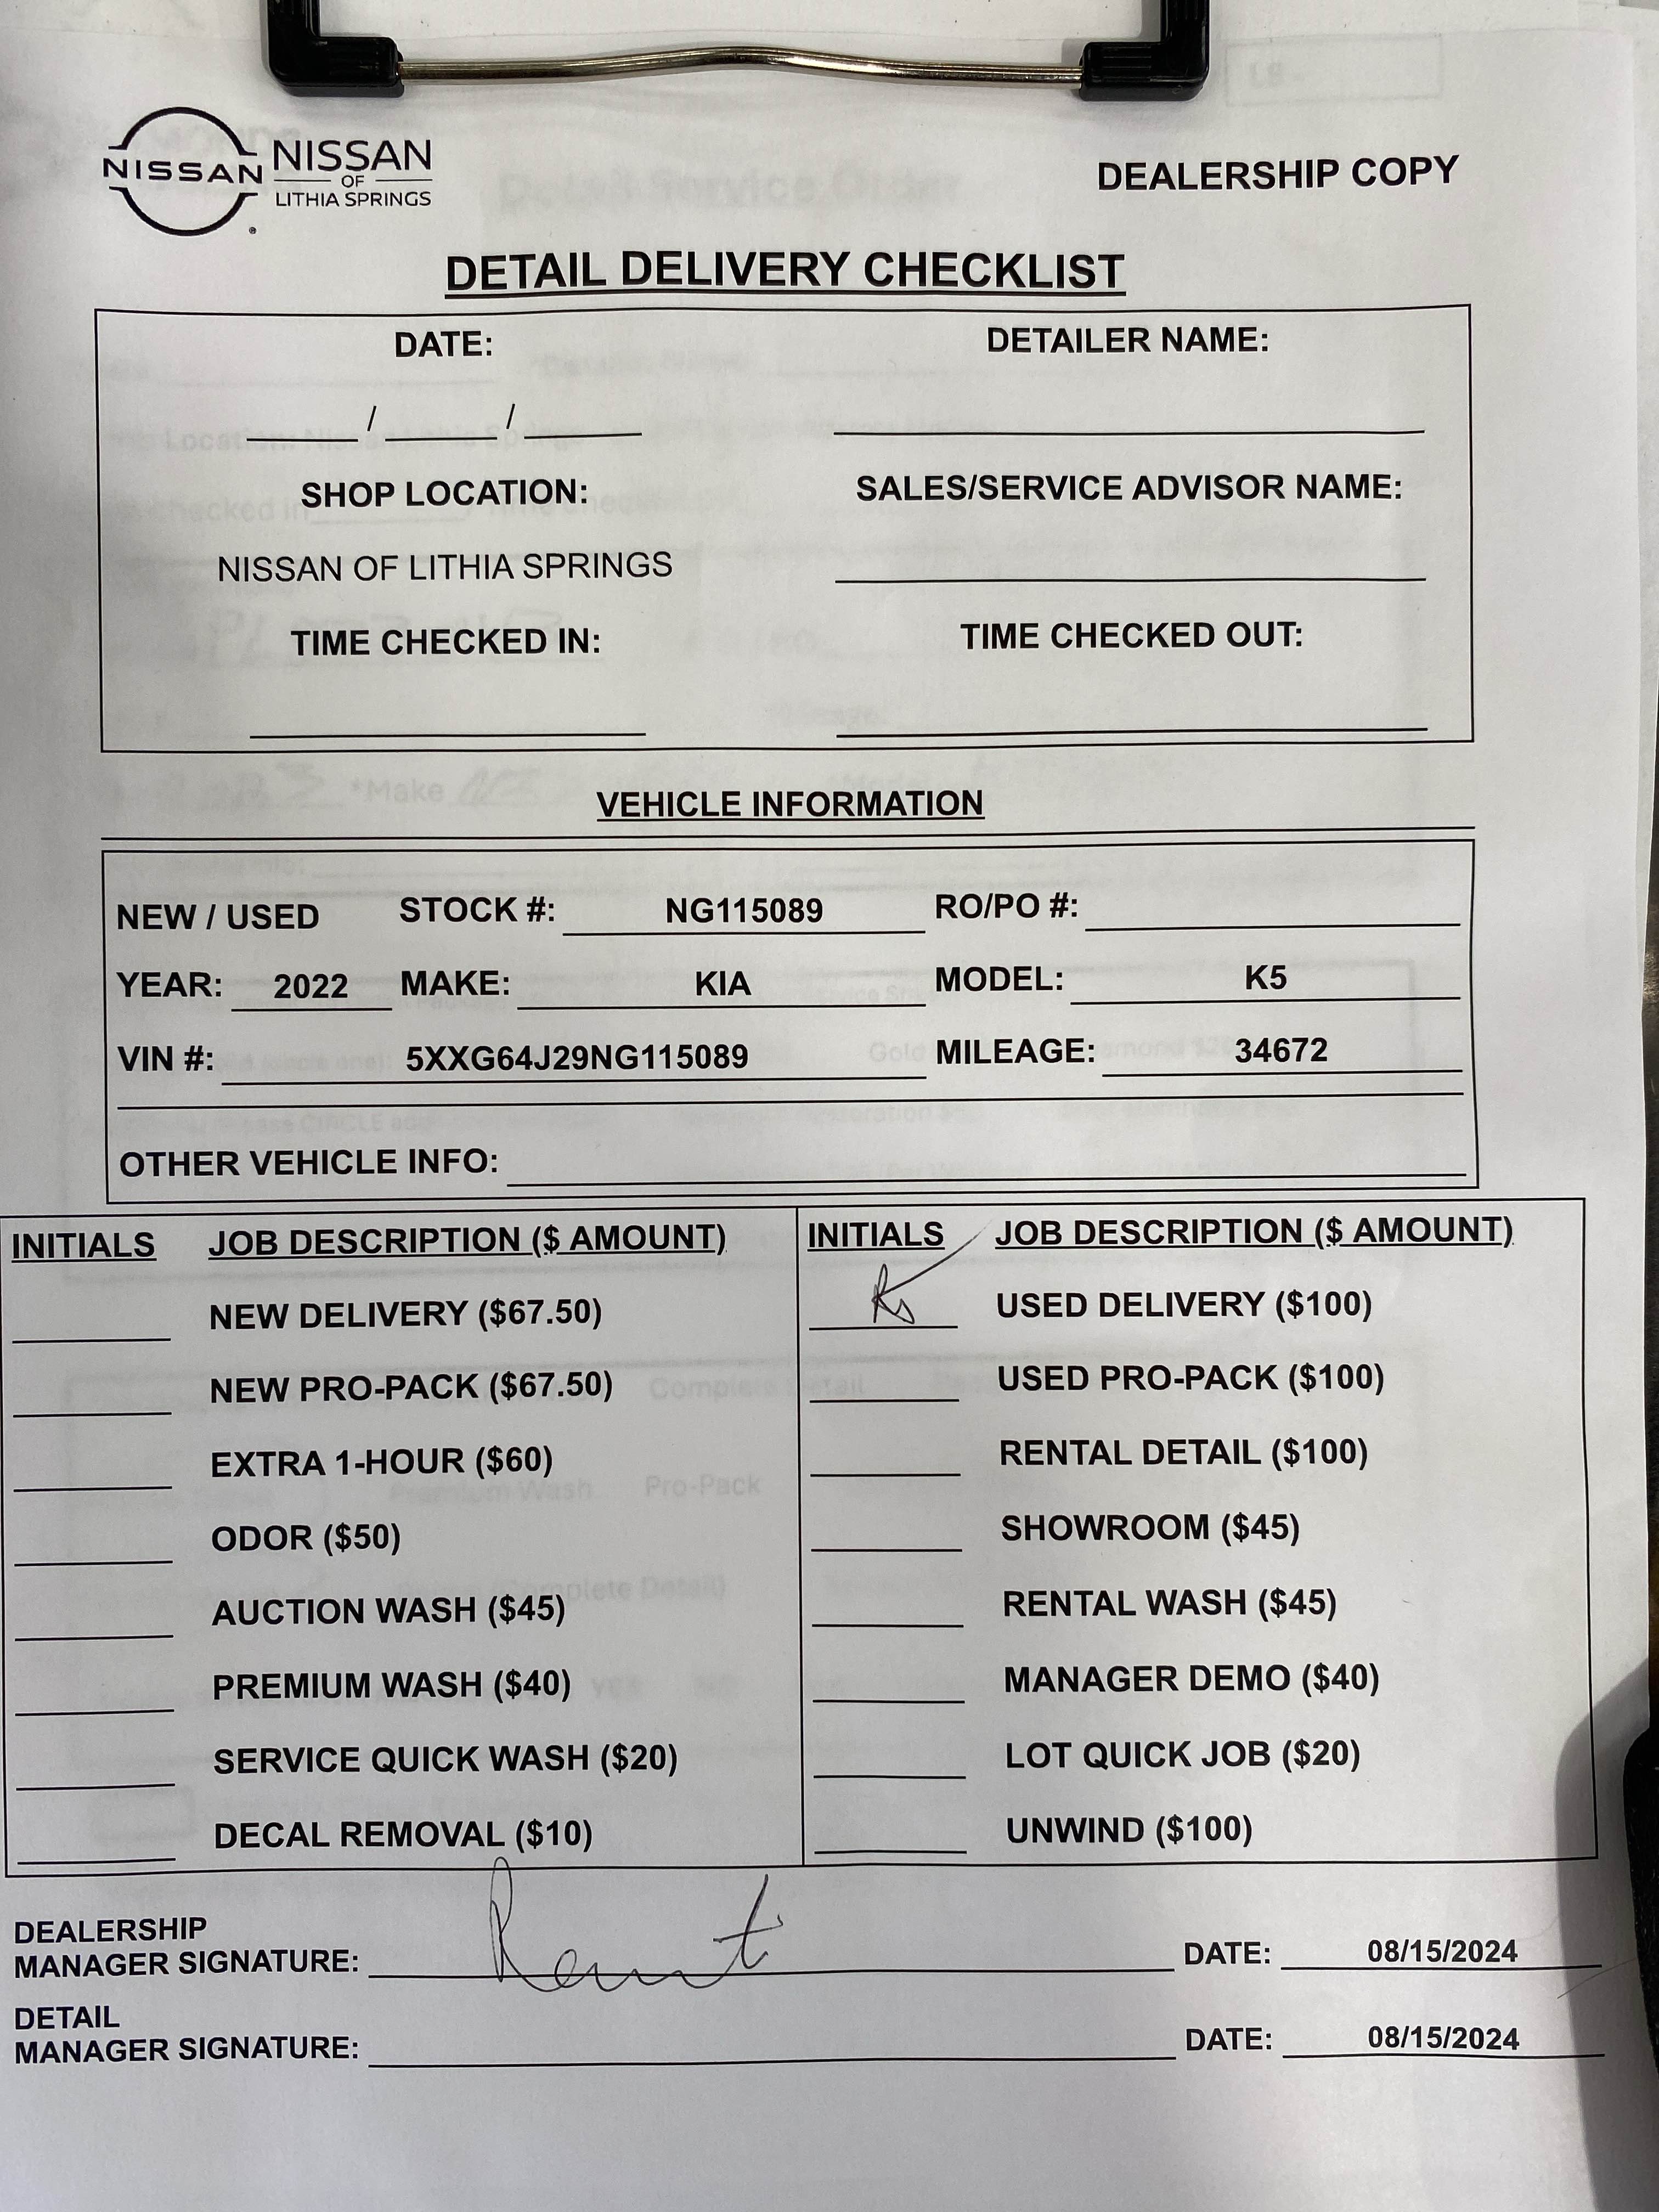 NISSAN
NISSAN
OF
LITHIA SPRINGS
DEALERSHIP COPY
DETAIL DELIVERY CHECKLIST
DATE: DETAILER NAME:
/ /
SHOP LOCATION: SALES/SERVICE ADVISOR NAME:
NISSAN OF LITHIA SPRINGS
TIME CHECKED IN: TIME CHECKED OUT:
VEHICLE INFORMATION
NEW / USED STOCK #: NG115089 RO/PO #:
YEAR: 2022 MAKE: KIA MODEL: K5
VIN #: 5XXG64J29NG115089 MILEAGE: 34672
OTHER VEHICLE INFO:
INITIALS JOB DESCRIPTION ($ AMOUNT) INITIALS JOB DESCRIPTION ($ AMOUNT)
NEW DELIVERY ($67.50) USED DELIVERY ($100)
NEW PRO-PACK ($67.50) USED PRO-PACK ($100)
EXTRA 1-HOUR ($60) RENTAL DETAIL ($100)
ODOR ($50) SHOWROOM ($45)
AUCTION WASH ($45) RENTAL WASH ($45)
PREMIUM WASH ($40) MANAGER DEMO ($40)
SERVICE QUICK WASH ($20) LOT QUICK JOB ($20)
DECAL REMOVAL ($10) UNWIND ($100)
DEALERSHIP
MANAGER SIGNATURE: DATE: 08/15/2024
DETAIL
MANAGER SIGNATURE: DATE: 08/15/2024